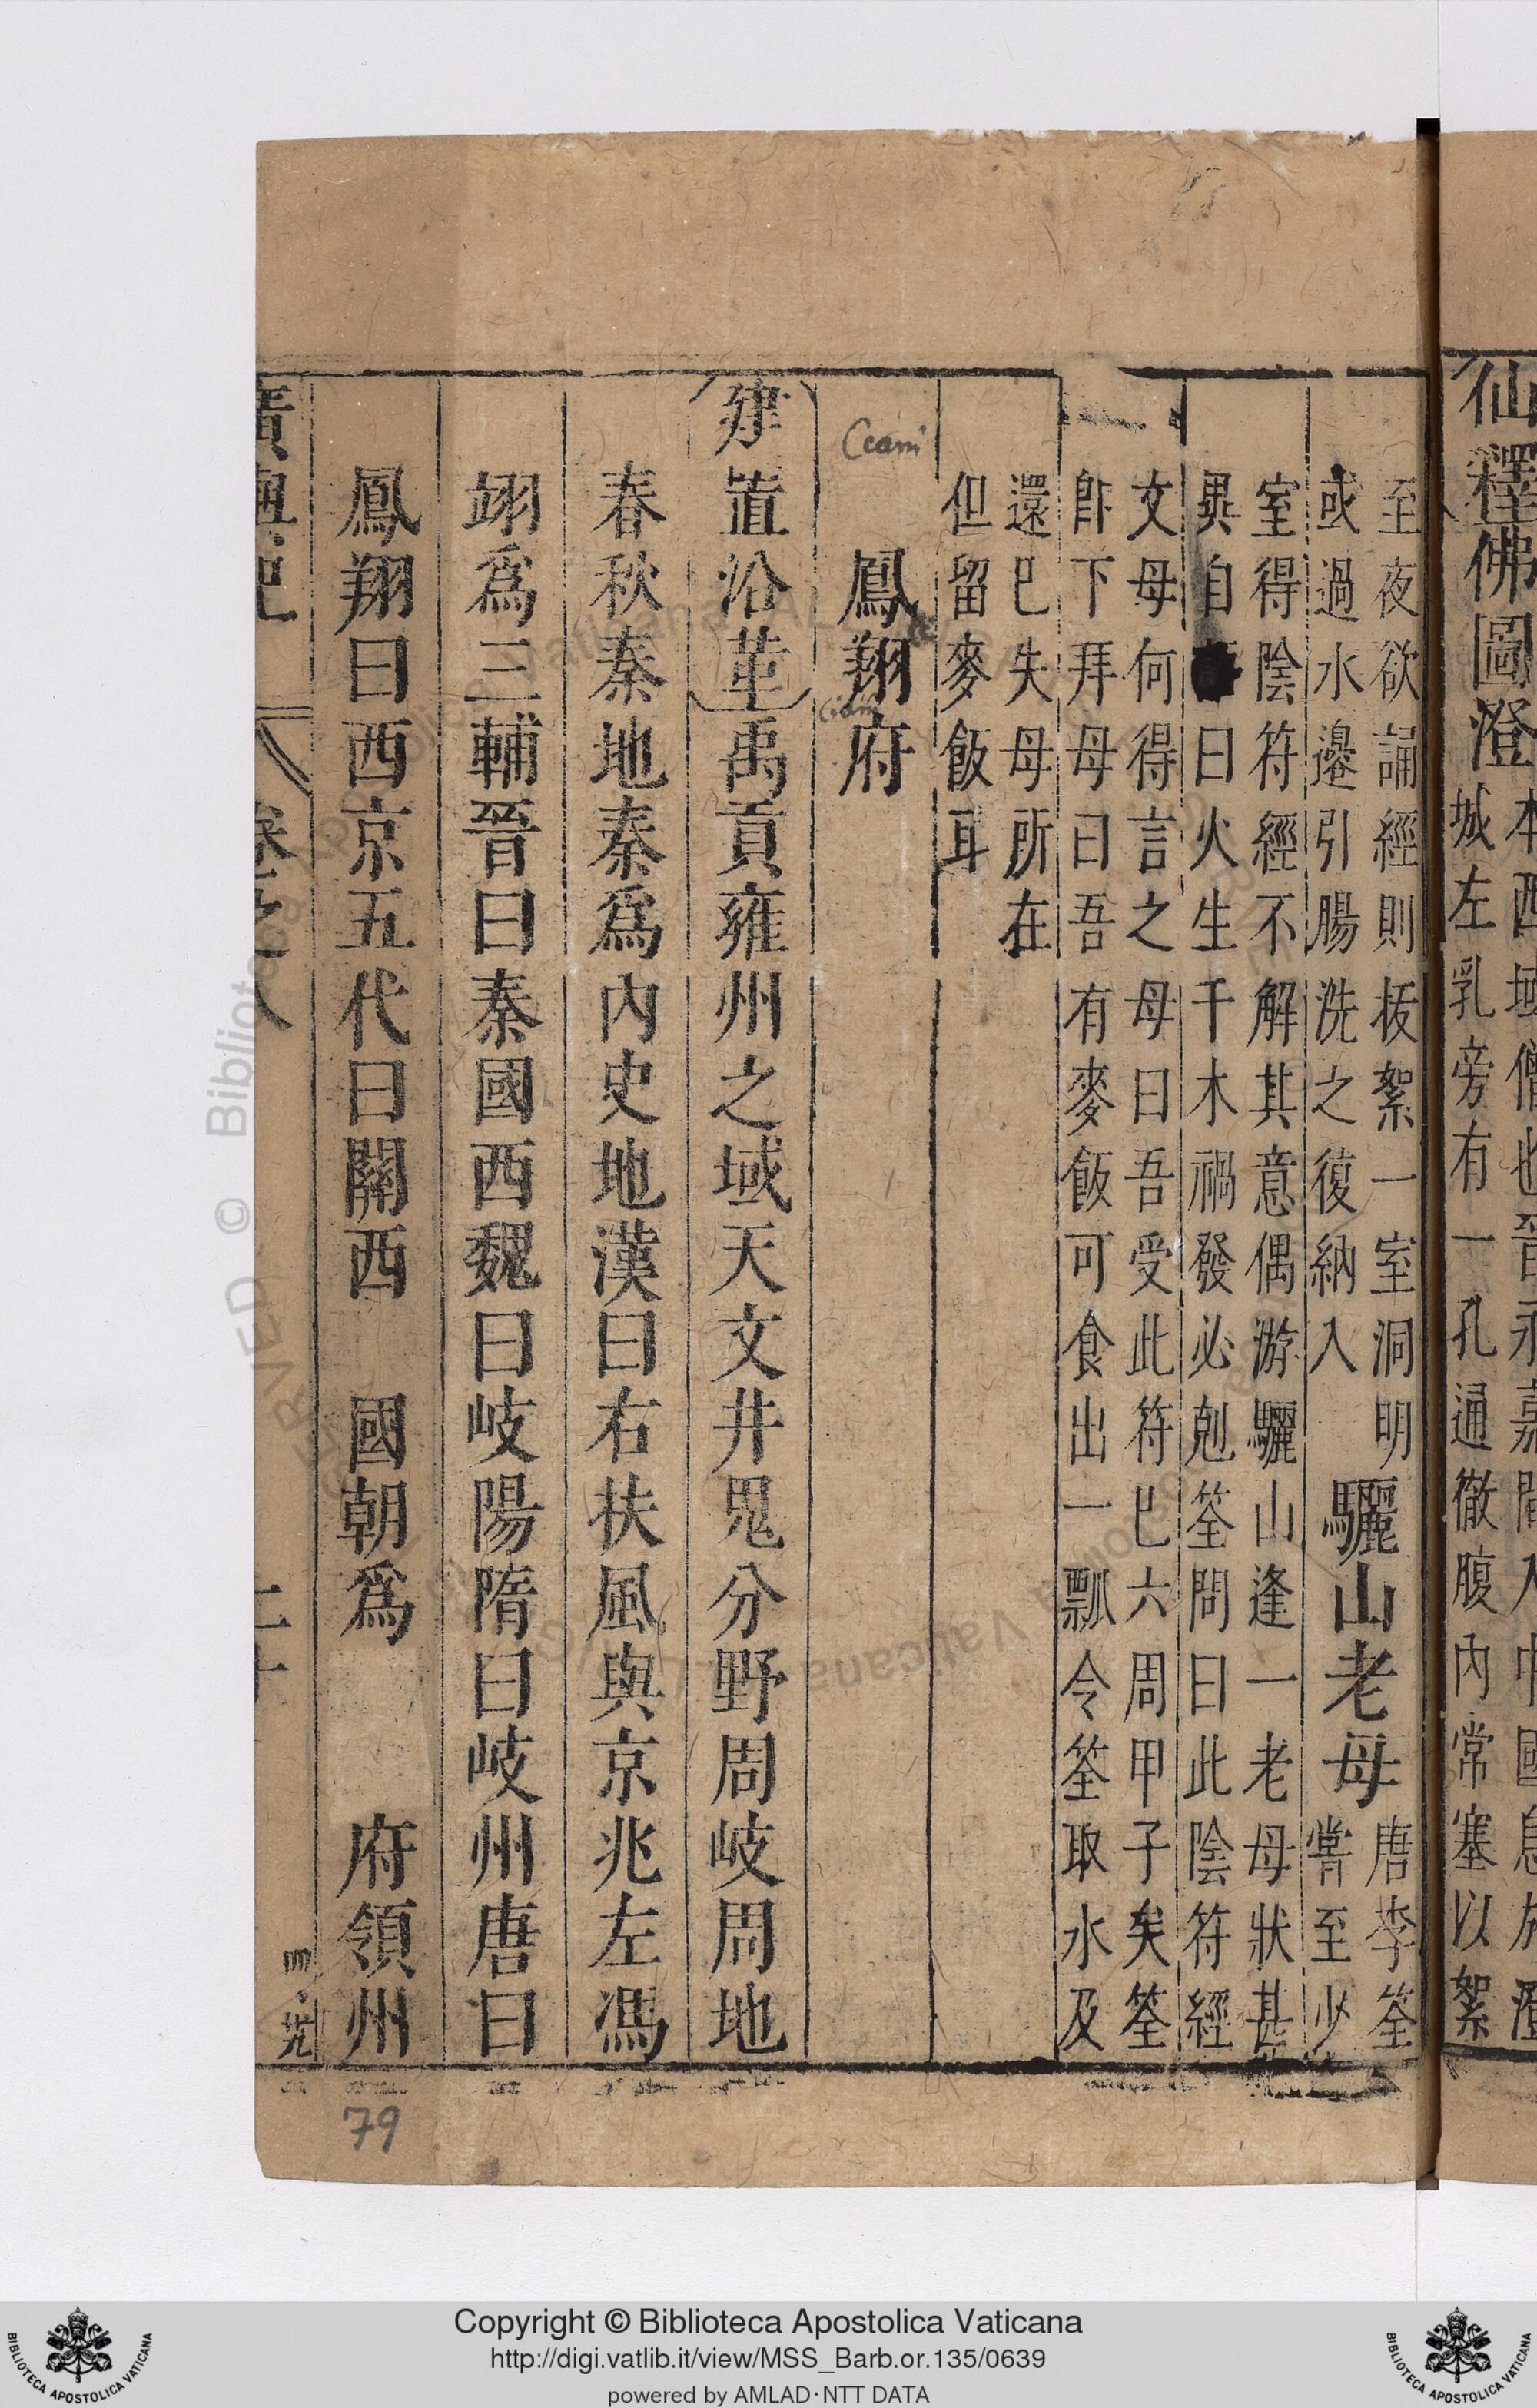 仙釋佛圖澄
本西域僧也晉永嘉間入中國
城左乳旁有一孔通徹腹內常塞以絮
至夜欲誦經則拔絮一室洞明
或過水邊引腸洗之復納入
驪山老母
唐李筌
嘗至少
室得陰符經不解其意偶游驪山逢一老母狀甚
異自曰火生千木禍發必剋筌問曰此陰符經
文母何得言之母曰吾受此符巳六周甲子矣筌
卽下拜母曰吾有麥飯可食出一瓢令筌取水及
還巳失母所在
但留麥飯耳
鳳翔府
建置沿革禹貢雍州之域天文井鬼分野周岐周地
春秋秦地秦爲內史地漢曰右扶風與京兆左馮
翊爲三輔晉曰秦國西魏曰岐陽隋曰岐州唐曰
鳳翔曰西京五代曰關西 國朝爲 府領州
79
Copyright © Biblioteca Apostolica Vaticana
http://digi.vatlib.it/view/MSS_Barb.or.135/0639
powered by AMLAD·NTT DATA
BIBLIOTECA APOSTOLICA VATICANA
BIBLIOTECA APOSTOLICA VATICANA